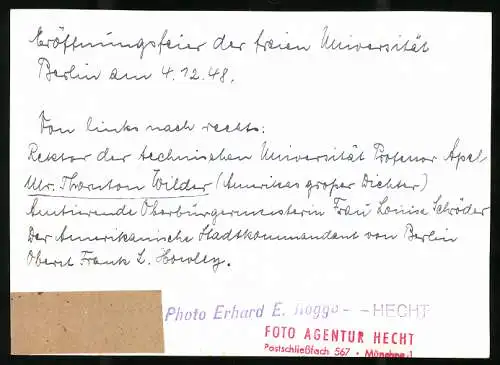 Eröffnungsfeier der freien Universität
Berlin am 4.12.48.
Von links nach rechts:
Rektor der technischen Universität Professor Apel
Mr. Thornton Wilder (Amerikas großer Dichter)
Amtierende Oberbürgermeisterin Frau Louise Schröder
Der Amerikanische Stadtkommandant von Berlin
Oberst Frank L. Howley.
Photo Erhard E. Rogge - - HECHT
FOTO AGENTUR HECHT
Postschließfach 567 • München 1